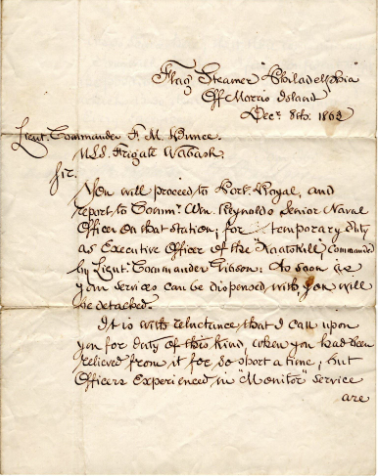 Flag Steamer Philadelphia
Off Morris Island
Decr. 8th. 1863
Lieut. Commander F. M. Bunce.
U.S.S. Frigate Wabash.
Sir.
You will proceed to Port Royal, and
report to Commr. Wm. Reynolds Senior Naval
Officer on that station; for temporary duty
as Executive Officer of the "Kaatskill", Commanded
by Lieut. Commander Gibson. As soon as
your services can be dispensed with you will
be detached.
It is with reluctance that I call upon
you for duty of this kind, when you had been
relieved from it for so short a time, but
Officers Experienced in "Monitor" service
are